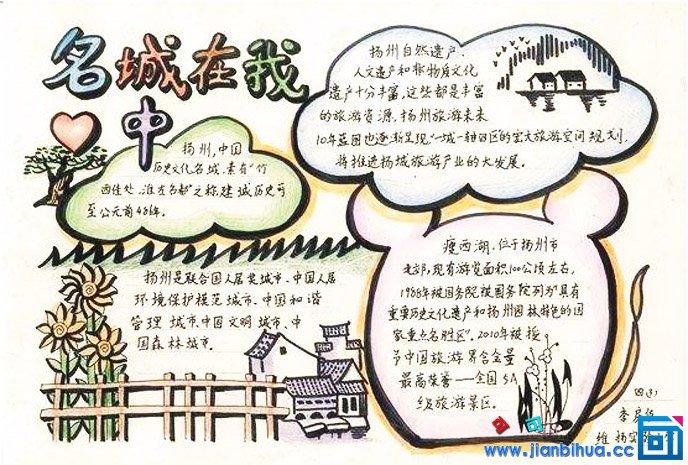 名城在我
中
扬州,中国
历史文化名城,素有“竹
西佳处,淮左名都”之称,建城历史可
至公元前486年。
扬州自然遗产、
人文遗产和非物质文化
遗产十分丰富,这些都是丰富
的旅游资源。扬州旅游未来
10年蓝图也逐渐呈现“一城一轴四区的宏大旅游空间规划,
将推进扬城旅游产业的大发展。
扬州是联合国人居奖城市、中国人居
环境保护模范城市、中国和谐
管理城市、中国文明城市、中
国森林城市。
瘦西湖,位于扬州市
北郊,现有游览面积100公顷左右,
1988年被国务院被国务院列为“具有
重要历史文化遗产和扬州园林特色的国
家重点名胜区”。2010年被授
予中国旅游界含金量
最高荣誉——全国5A
级旅游景区。
www.jianbihua.cc